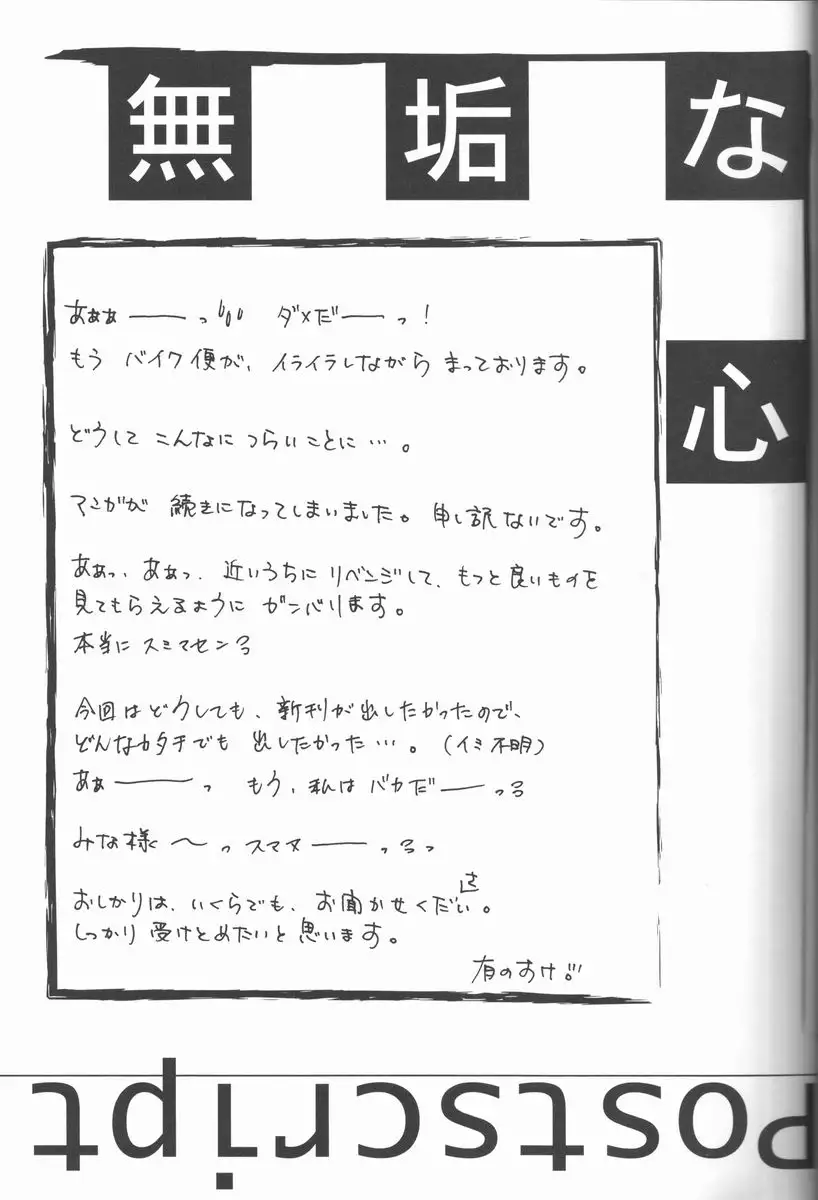 無垢な
心
あぁぁ——っ ダメだ——っ!
もう バイク便が、イライラしながら まっております。
どうして こんなに つらいことに…。
マンガが 続きになってしまいました。申し訳ないです。
あぁっ、あぁっ、近いうちに リベンジして、もっと良いものを
見てもらえるように ガンバります。
本当に スミマセンろ
今回は どうしても、新刊が出したかったので、
どんなカタチでも 出したかった…。(イミ不明)
あぁ———っ もう、私は バカだ——っろ
みな様 〜っ スマヌ——っろっ
おしかりは、いくらでも、お聞かせくださぃ。
しっかり 受けとめたいと 思います。
有のすけ
Postscript